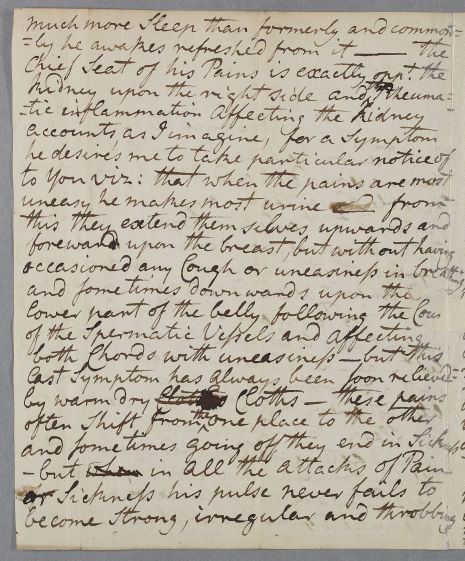 much more Sleep than formerly and common=
=ly he awakes refreshed from it —— the
Chief Seat of his Pains is exactly oppt. the
Kidney upon the right side and the rheuma=
=tic inflammation Affecting the Kidney
accounts as I imagine, for a Symptom
he desires me to take particular notice of
to You viz: that when the pains are most
uneasy he makes most urine and from
this they extend themselves upwards and
foreward upon the breast, but without having
occasioned any Cough or uneasiness in breathing
and sometimes downwards upon the
lower part of the belly following the Cour
of the Spermatic Vessels and affecting
both Chords with uneasiness — but this
last Symptom has always been soon relieved
by warm dry Cloths — these pains
often shift from the one place to the other
and sometimes going off they end in Sickness
– but when in all the attacks of Pain
or Sickness his pulse never fails to
become Strong, irregular and throbbing